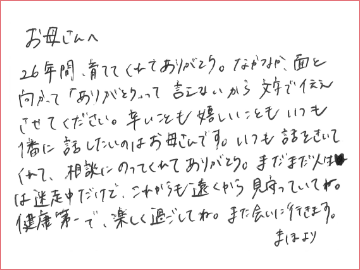 お母さんへ
26年間、育ててくれてありがとう。なかなか、面と
向かって「ありがとう」って言えないから文字で伝え
させてください。辛いことも嬉しいこともいつも1
番に話したいのはお母さんです。いつも話をきいて
くれて、相談にのってくれてありがとう。まだまだ人生
は迷走中だけど、これからも遠くから見守っていてね。
健康第一で、楽しく過ごしてね。また会いに行きます。
まほより